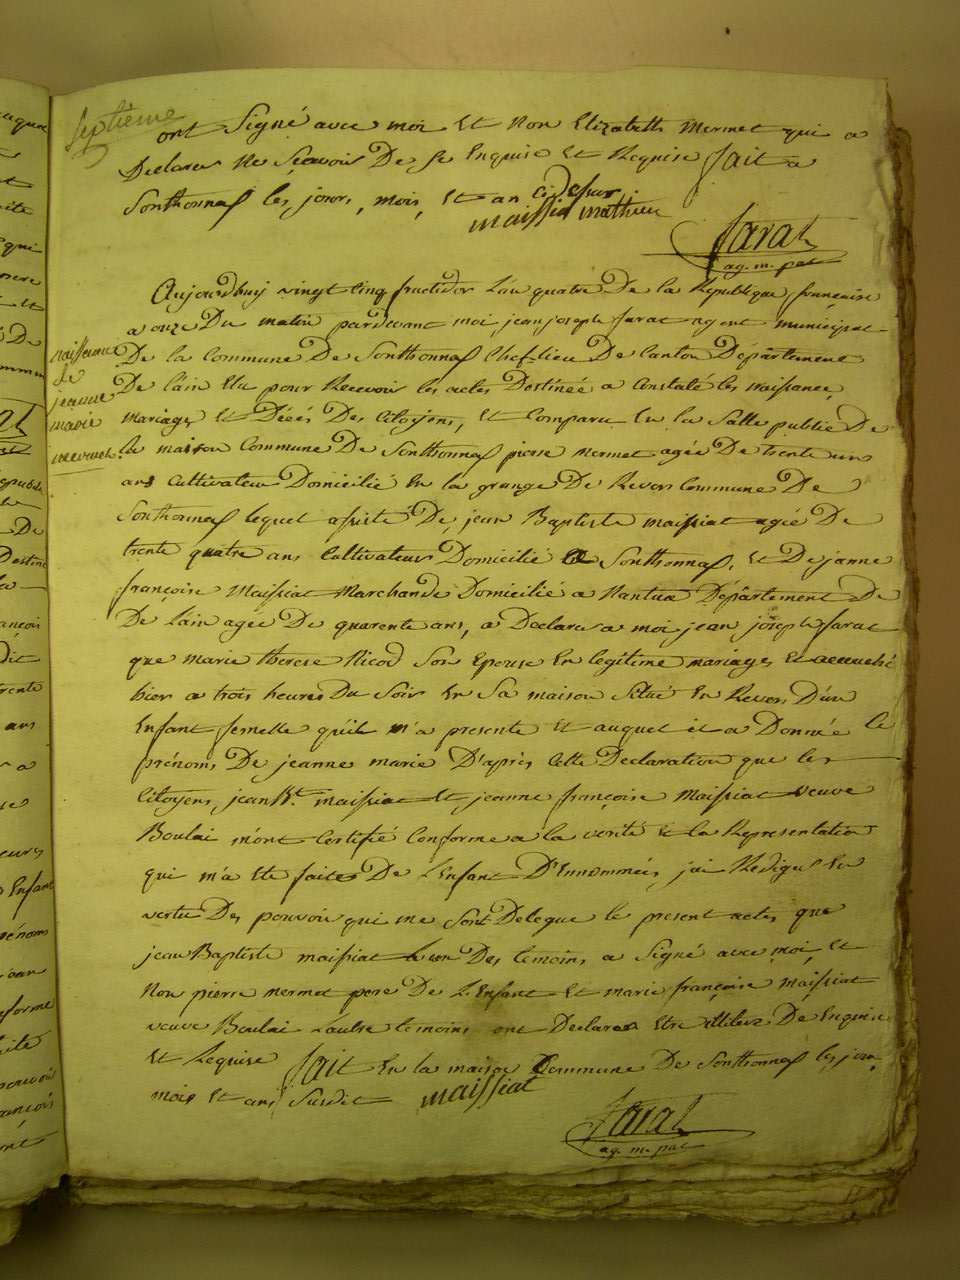 Septième
ont Signé avec moi Et Non Elizabeth Mermet qui a
Declarer Ne Scavoir De Se Enquise Et Requise fait a
Sonthonnaſ les jours, mois, Et an Cidessus
maissia mathieu
Sarat
ag. m. pal
Aujourdhuy vingt Cinq fructidor L'an quatre De la République francaise
a onze Du matin pardevant moi jean joseph Sarat agent municipal
De la Commune De Sonthonnaſ Chef-lieu De Canton Département
De l'ain Elu pour Recevoir les actes Destinée a Constaté les Naissance,
mariages Et Décés Des Citoyens, Et Comparu En la Salle public De
la maison Commune De Sonthonnaſ pierre Mermet agée De trente un
ans Cultivateur Domicilié En la grange De Revers Commune De
Sonthonnaſ lequel assisté De jean Baptiste maissiat agée De
trente quatre ans Cultivateur Domicilié a Sonthonnaſ, Et De janne
françoise Maissiat Marchande Domicilié a Nantua Département De
De Lain agée De quarente ans, a Declarer a moi jean joseph Sarat
que marie therese Nicod Son Epouse En legitime mariages Et accouché
hier a trois heures Du Soir En Sa maison Situé En Revers D'un
Enfant femelle qu'il m'a presenté Et auquel il a Donnée le
prénoms De jeanne marie D'après Cette Declaration que les
Citoyens, jean Bte maissiat Et jeanne françoise Maissiat veuve
Boulai m'ont Certifié Conforme a la verité & la Representation
qui m'a Eté faites De L'Enfant Denommées, jai Redigé En
vertu Des pouvoir qui me Sont Delegue le present actes que
jean Baptiste maissiat le un Des temoins a Signé avec moi, Et
Non pierre mermet pere De L'Enfant Et marie françoise maissiat
veuve Boulai L'autre temoins ont Declarer Etre illiterz De Enquise
Et Requise fait En la maison Commune De Sonthonnaſ les jour
mois Et ans Susdit maissiat
Sarat
ag. m. pal
naissance
de
jeanne
marie
mermet